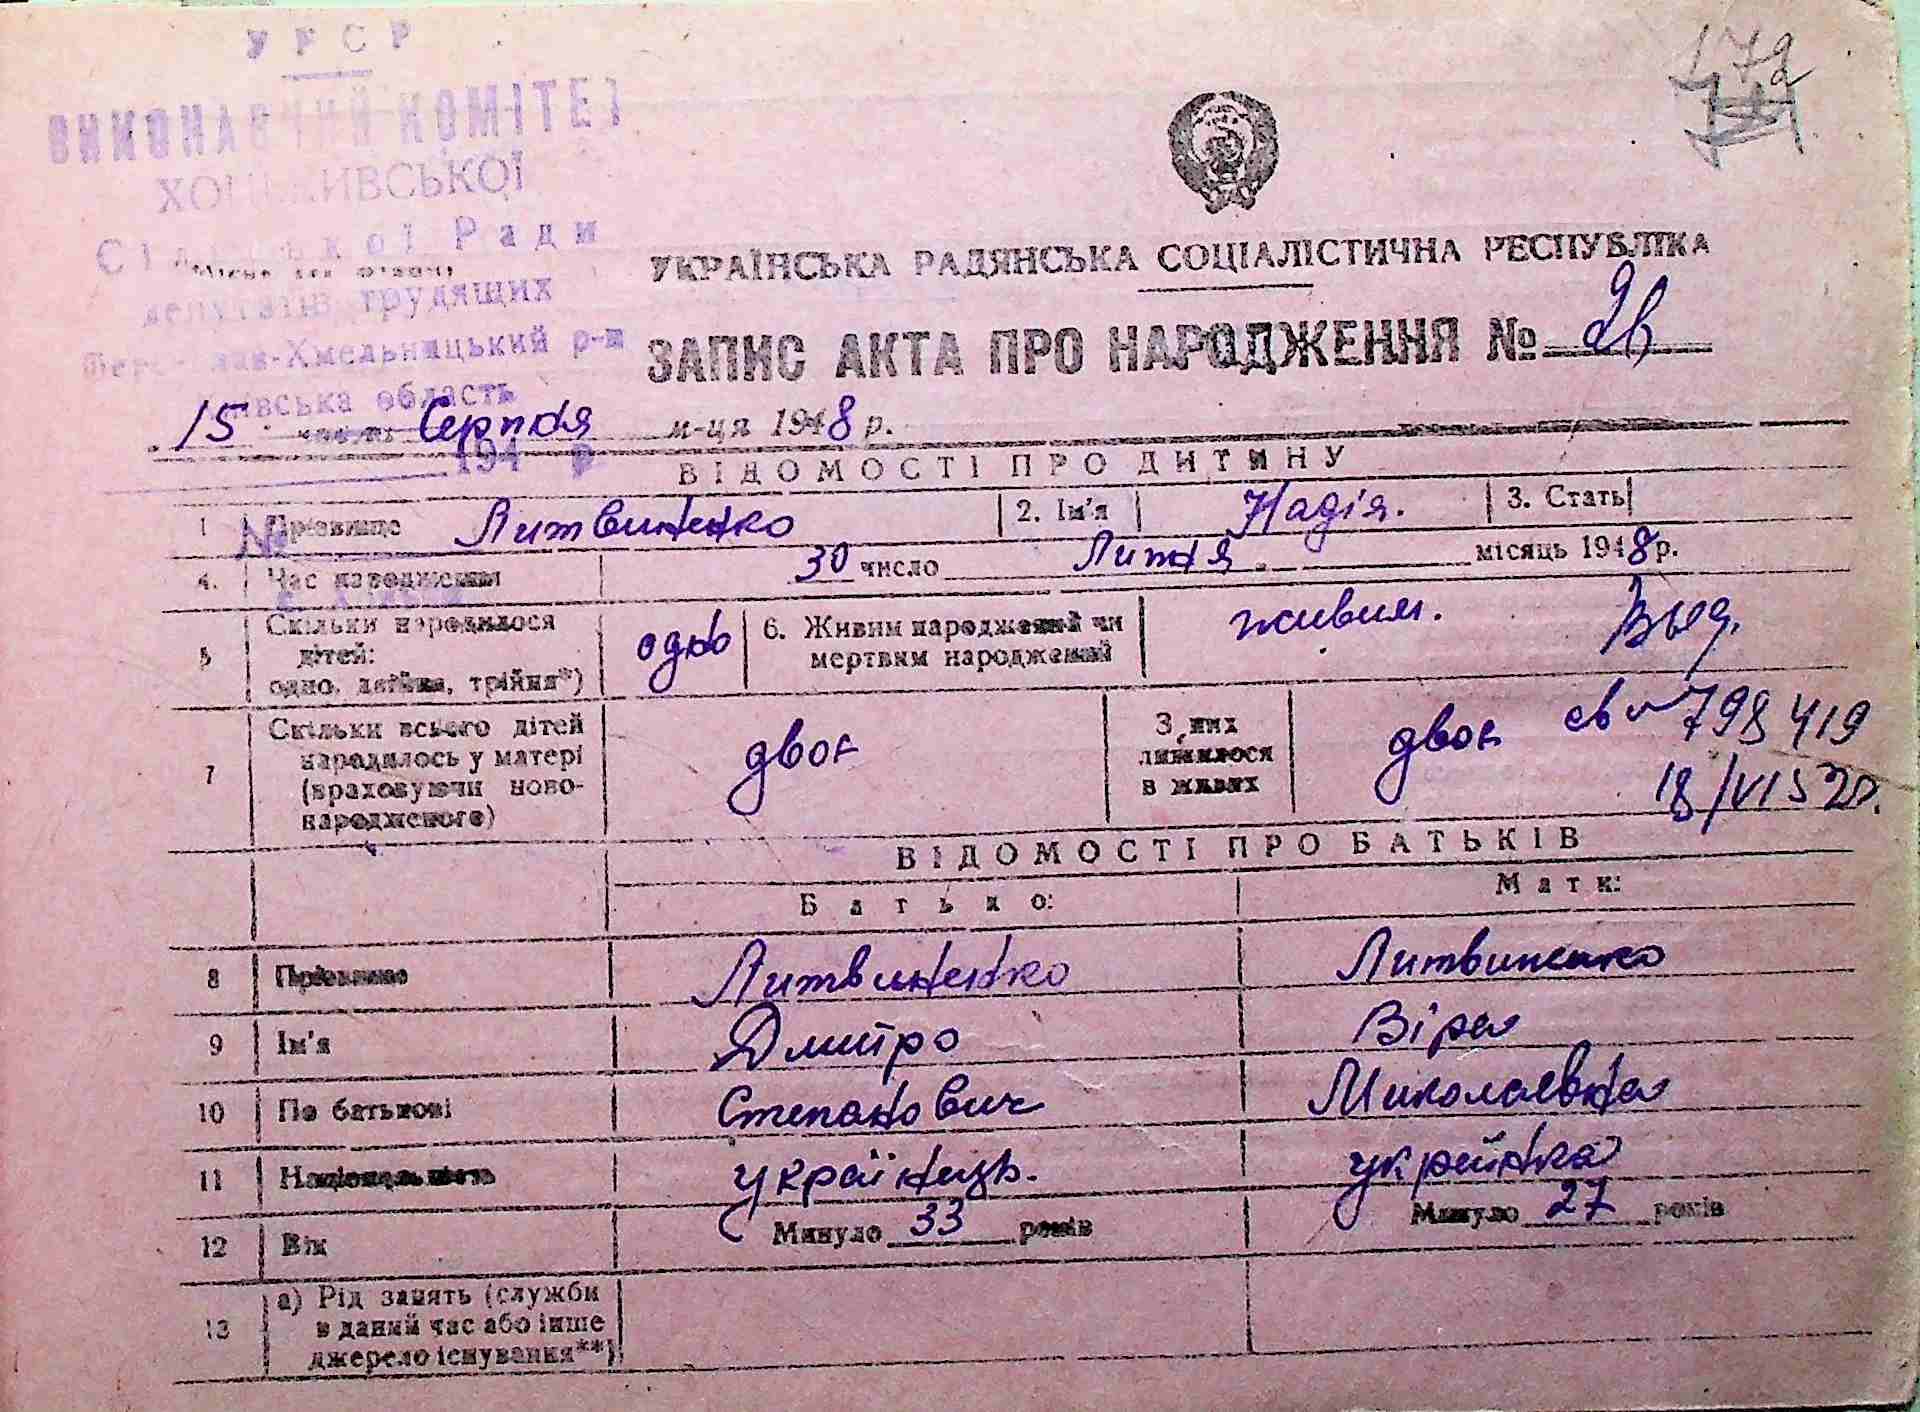 УРСР
ВИКОНАВЧИЙ КОМІТЕТ
ХОЦЬКІВСЬКОЇ
Сільської Ради
депутатів трудящих
Переяслав-Хмельницький р-н
Київська область
194 р
472
УКРАЇНСЬКА РАДЯНСЬКА СОЦІАЛІСТИЧНА РЕСПУБЛІКА
ЗАПИС АКТА ПРО НАРОДЖЕННЯ №
15 Серпня м-ця 1948 р.
ВІДОМОСТІ ПРО ДИТИНУ
1 Прізвище Литвиненко 2. Ім'я Надія. 3. Стать
4. Час народження 30 число Липня. місяць 1948 р.
5 Скільки народилося дітей: одно, двійня, трійня*) одно 6. Живим народжений чи мертвим народжений живим. Выд.
7 Скільки всього дітей народилось у матері (враховуючи новонародженого) двоє З них лишилося в живих двоє св 798419
18/VI 52г.
ВІДОМОСТІ ПРО БАТЬКІВ
Батько: Мати:
8 Прізвище Литвиненко Литвиненко
9 Ім'я Дмитро Віра
10 По батькові Степанович Миколаєвна
11 Національність українець. українка
12 Вік Минуло 33 років Минуло 27 років
13 а) Рід занять (служби в даний час або інше джерело існування**)